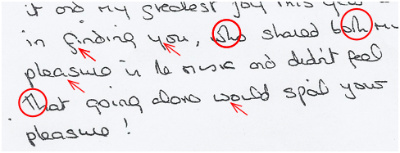 it and my greatest joy this year -
in finding you, who shared both my
pleasure in the music and didn't feel
that going alone would spoil your
pleasure!